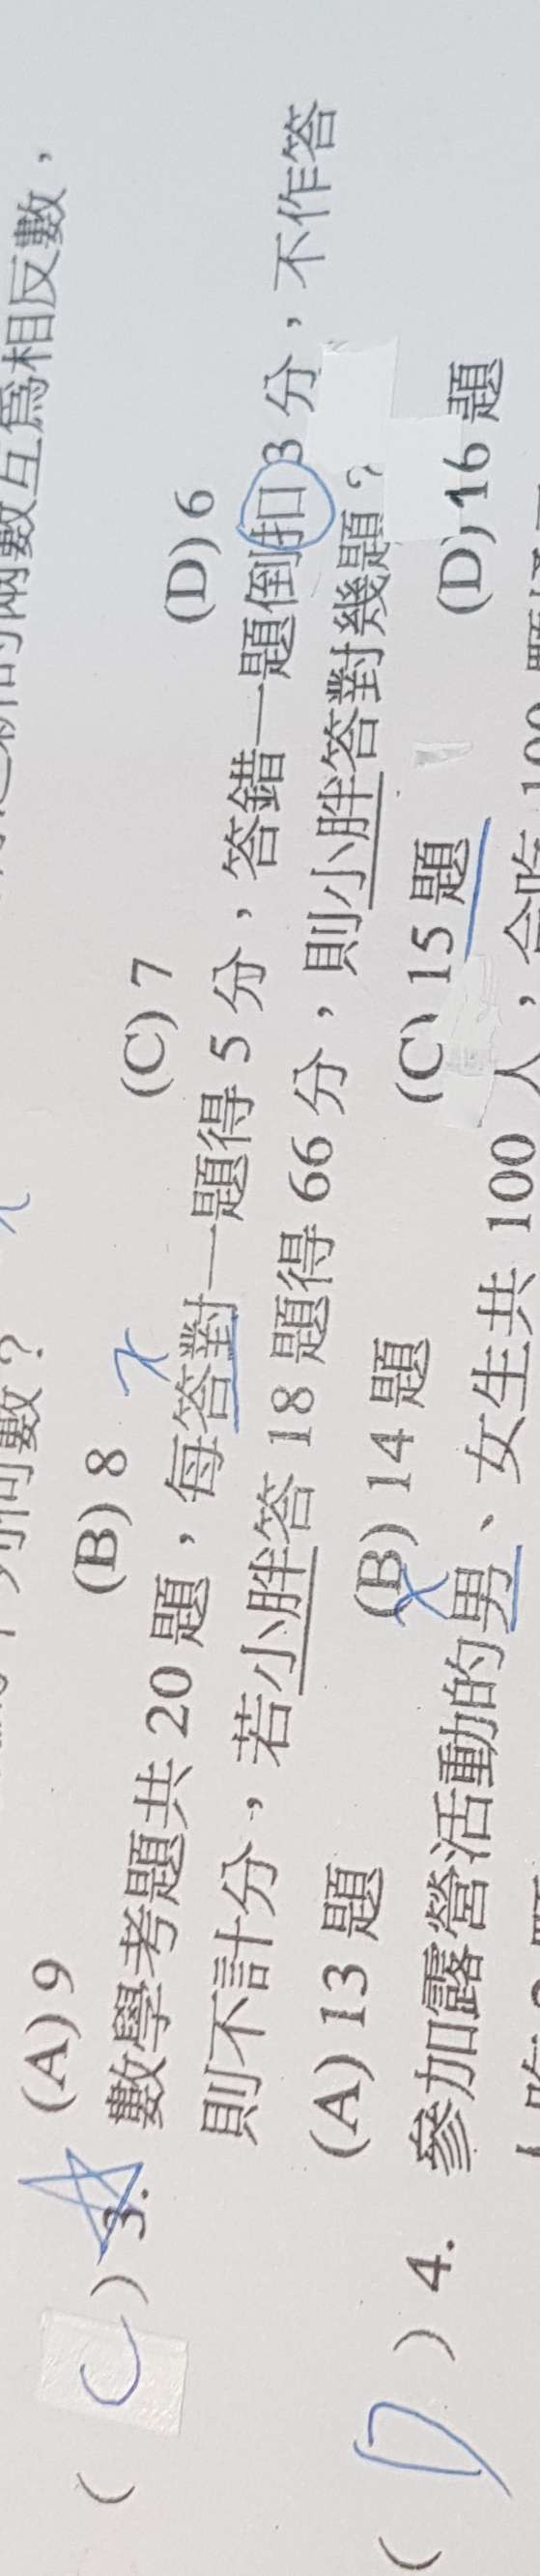 互為相反數，
列何數？
(A) 9 (B) 8 (C) 7 (D) 6
( C ) 3. 數學考題共 20 題，每答對一題得 5 分，答錯一題倒扣 3 分，不作答
x
則不計分，若小胖答 18 題得 66 分，則小胖答對幾題？
(A) 13 題 (B) 14 題 (C) 15 題 (D) 16 題
x
( D ) 4. 參加露營活動的男、女生共 100 人，